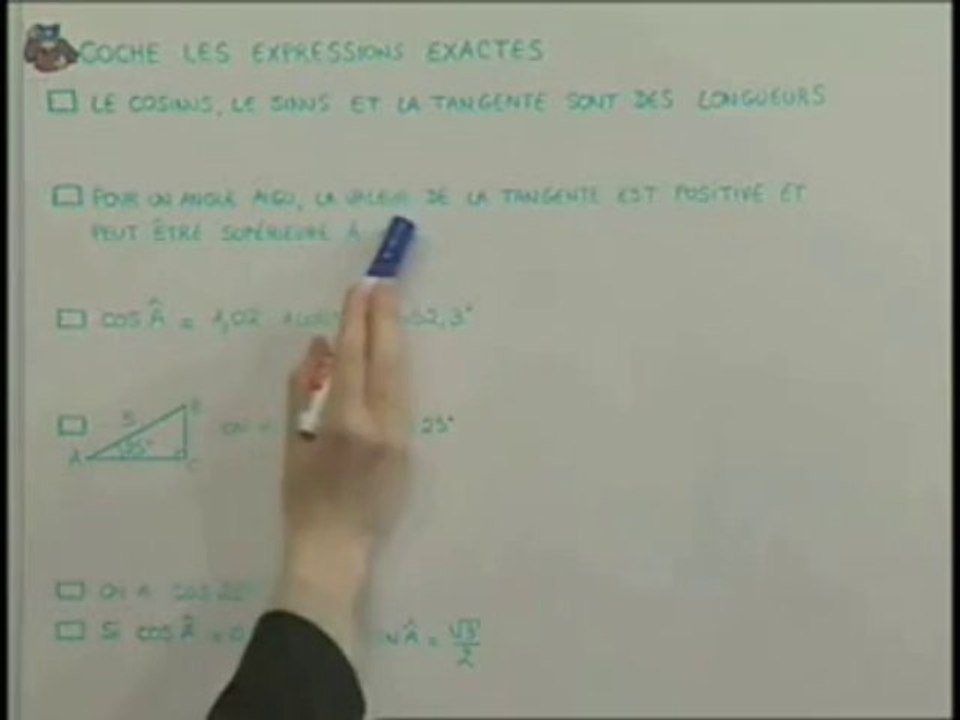 COCHE LES EXPRESSIONS EXACTES
LE COSINUS, LE SINUS ET LA TANGENTE SONT DES LONGUEURS
POUR UN ANGLE AIGU, LA VALEUR DE LA TANGENTE EST POSITIVE ET
PEUT ÊTRE SUPÉRIEURE À
COS Â = 1,02 52,3°
5 B
A C
25°
ON A COS
SI COS Â = 0 Â = √3/2